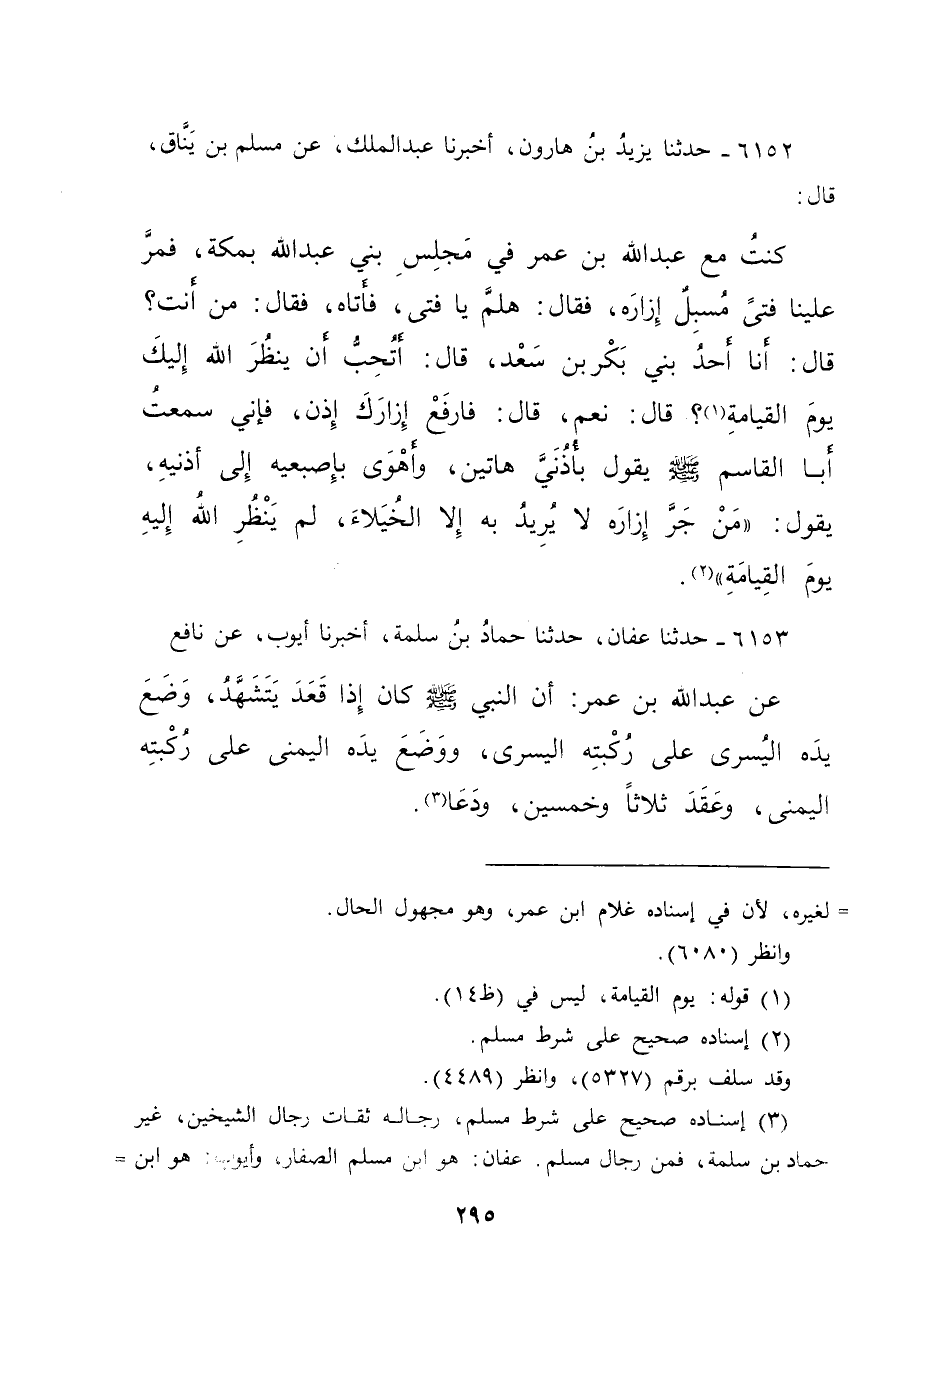 ٦١٥٢ - حدثنا يزيدُ بنُ هارون، أخبرنا عبدالملك، عن مسلم بن يَنَّاق،
قال:
كنتُ مع عبدالله بن عمر في مَجلِسِ بني عبدالله بمكة، فمرَّ
علينا فتىً مُسبِلٌ إِزارَه، فقال: هلمَّ يا فتى، فأَتاه، فقال: من أَنت؟
قال: أَنا أَحدُ بني بَكْرِ بن سَعْد، قال: أَتُحِبُّ أَن ينظُرَ الله إِليكَ
يومَ القيامةِ(١)؟ قال: نعم، قال: فارفَعْ إِزارَكَ إِذن، فإِني سمعتُ
أَبا القاسم ﷺ يقول بأُذُنَيَّ هاتين، وأَهْوَى بإِصبعيه إِلى أذنيهِ،
يقول: «مَنْ جَرَّ إِزارَه لا يُرِيدُ به إِلا الخُيَلاءَ، لم يَنْظُرِ اللهُ إِليهِ
يومَ القِيامَةِ»(٢).
٦١٥٣ - حدثنا عفان، حدثنا حمادُ بنُ سلمة، أخبرنا أيوب، عن نافع
عن عبدالله بن عمر: أن النبي ﷺ كان إِذا قَعَدَ يَتَشَهَّدُ، وَضَعَ
يدَه اليُسرى على رُكْبتِه اليسرى، ووَضَعَ يدَه اليمنى على رُكْبتِه
اليمنى، وعَقَدَ ثلاثاً وخمسين، ودَعَا(٣).
= لغيره، لأن في إسناده غلام ابن عمر، وهو مجهول الحال.
وانظر (٦٠٨٠).
(١) قوله: يوم القيامة، ليس في (ظ١٤).
(٢) إسناده صحيح على شرط مسلم.
وقد سلف برقم (٥٣٢٧)، وانظر (٤٤٨٩).
(٣) إسناده صحيح على شرط مسلم، رجاله ثقات رجال الشيخين، غير
حماد بن سلمة، فمن رجال مسلم. عفان: هو ابن مسلم الصفار، وأيوب: هو ابن =
٢٩٥